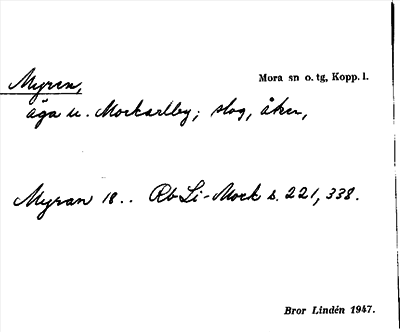 Myren,
Mora sn o. tg, Kopp. l.
äga u. Mockarlby; slog, åker,
Myran 18.. Rb Li-Mock s. 221, 338.
Bror Lindén 1947.